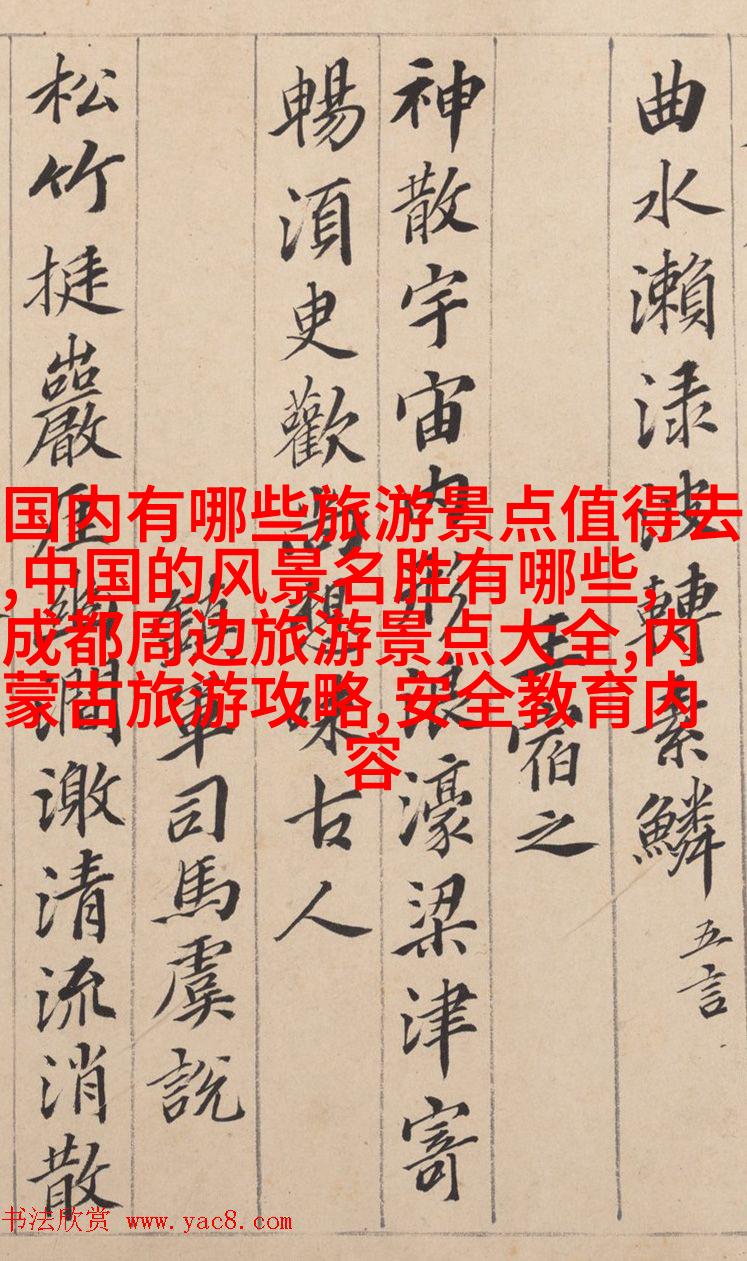 曲水瀨渌波轉素鱗 五言
王宿之
神散宇宙内形浪濠梁津寄
暢湏臾歡尚想味古人
鎮軍司馬虞説
松竹挺巖崖幽澗激清流消散
国内有哪些旅游景点值得去
,中国的风景名胜有哪些,
成都周边旅游景点大全,内
蒙古旅游攻略,安全教育内
容
书法欣赏 www.yac8.com